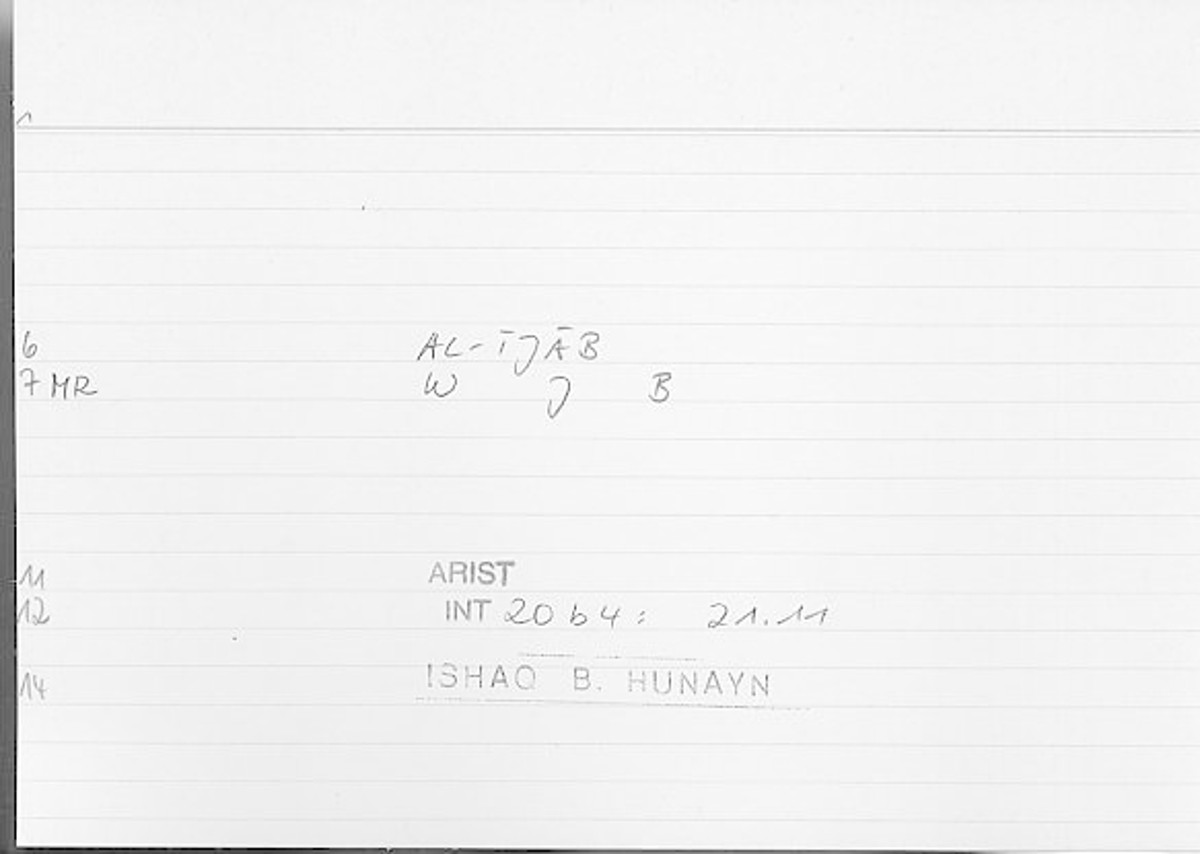 1
6 AL-ĪJĀB
7 MR W J B
11 ARIST
12 INT 20 b 4 : 21.11
14 ISHAQ B. HUNAYN